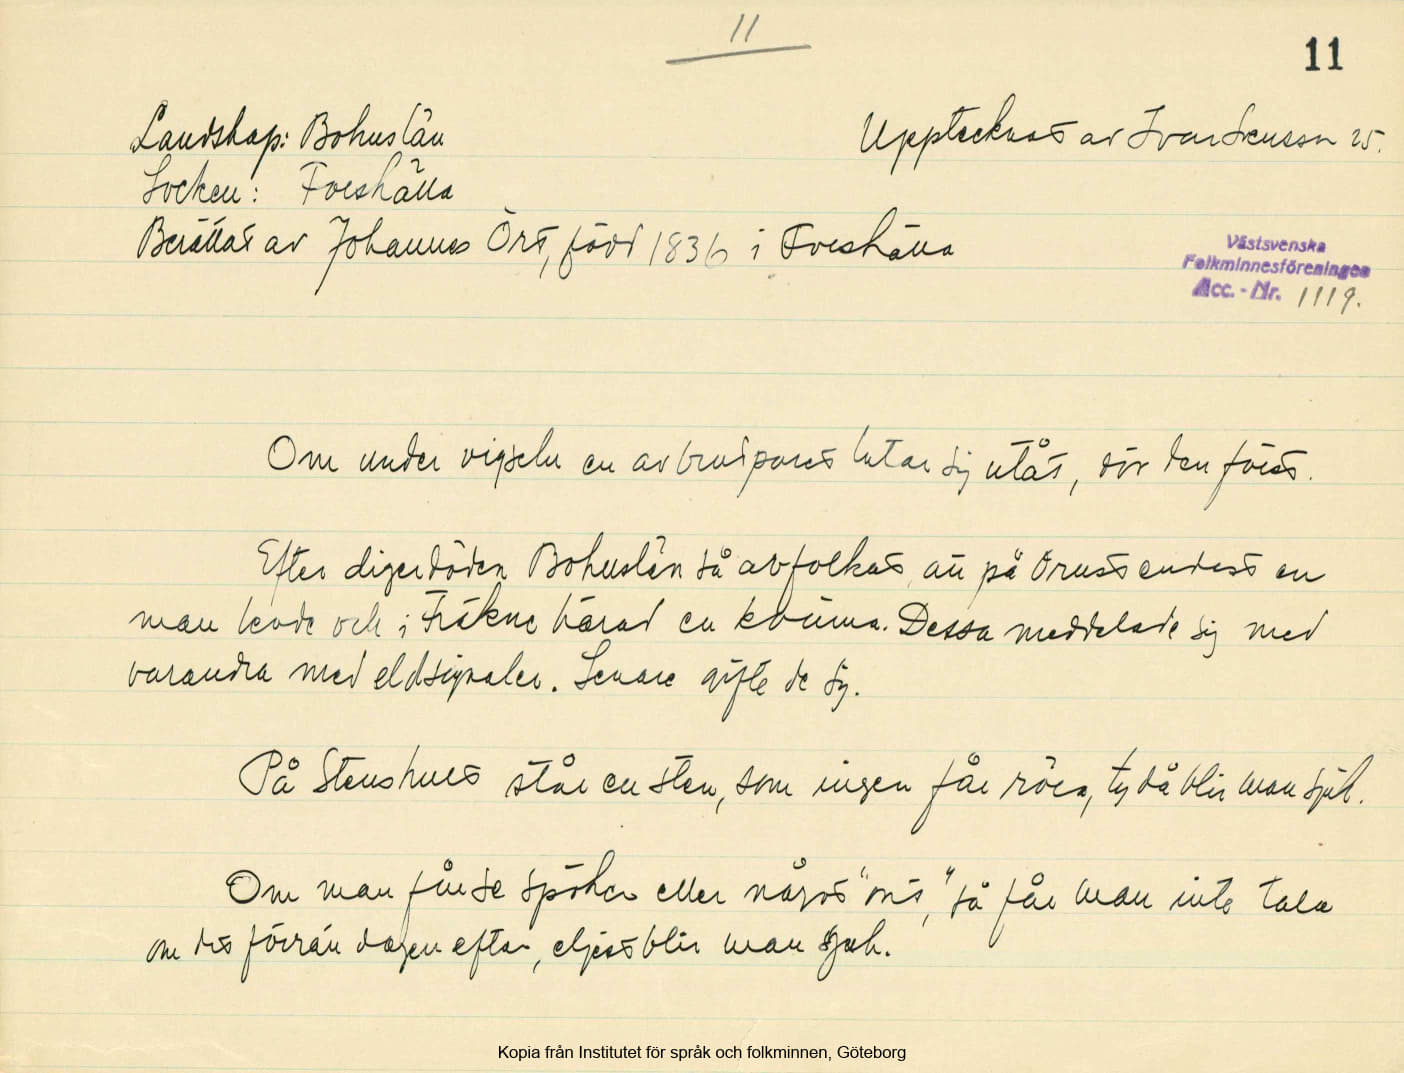 11
11
Landskap: Bohuslän
Upptecknat av Ivar Svensson 25.
Socken: Foeshälla
Berättat av Johannes Ört, född 1836 i Foeshälla
Västsvenska
Folkminnesföreningen
Acc.-Nr. 1119.
Om under vigseln en av brudparet lutar sig utåt, dör den först.
Efter digerdöden Bohuslän så avfolkat, att på Orust endast en
man levde och i Fräkne härad en kvinna. Dessa meddelade sig med
varandra med eldsignaler. Senare gifte de sig.
På Stenshult står en sten, som ingen får röra, ty då blir man sjuk.
Om man får se spöken eller något "ont", så får man inte tala
om det förrän dagen efter, eljest blir man sjuk.
Kopia från Institutet för språk och folkminnen, Göteborg